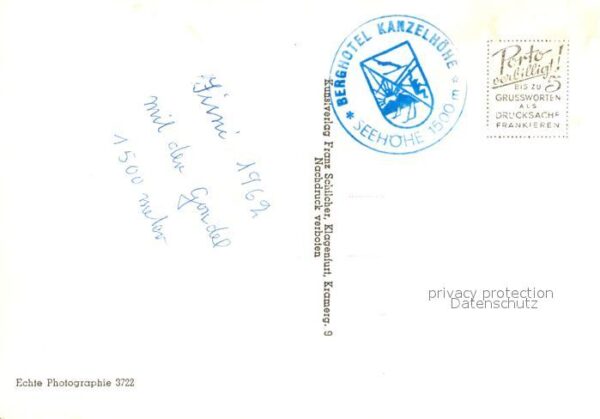 Juni 1962
mit der Gondel
1500 meter
* BERGHOTEL KANZELHÖHE *
SEEHÖHE 1500 m
Kunstverlag Franz Schilcher, Klagenfurt, Kramerg. 9
Nachdruck verboten
Porto
verbilligt!
5
BIS ZU
GRUSSWORTEN
ALS
DRUCKSACHE
FRANKIEREN
privacy protection
Datenschutz
Echte Photographie 3722